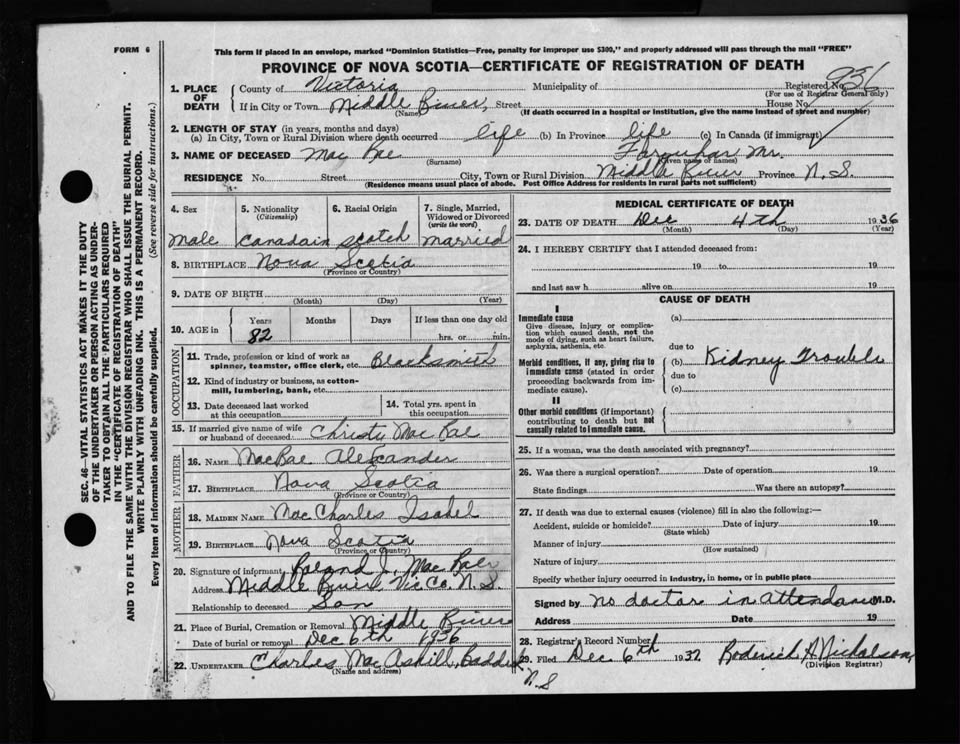 FORM 6
This form if placed in an envelope, marked "Dominion Statistics—Free, penalty for improper use $300," and properly addressed will pass through the mail "FREE"
PROVINCE OF NOVA SCOTIA—CERTIFICATE OF REGISTRATION OF DEATH
SEC. 46—VITAL STATISTICS ACT MAKES IT THE DUTY
OF THE UNDERTAKER OR PERSON ACTING AS UNDER-
TAKER TO OBTAIN ALL THE PARTICULARS REQUIRED
IN THE "CERTIFICATE OF REGISTRATION OF DEATH"
AND TO FILE THE SAME WITH THE DIVISION REGISTRAR WHO SHALL ISSUE THE BURIAL PERMIT.
WRITE PLAINLY WITH UNFADING INK. THIS IS A PERMANENT RECORD.
Every item of information should be carefully supplied. (See reverse side for instructions.)
1. PLACE OF DEATH
County of Victoria Municipality of Registered No. 936
(For use of Registrar General only)
If in City or Town Middle River, Street House No.
(Name) (If death occurred in a hospital or institution, give the name instead of street and number)
2. LENGTH OF STAY (in years, months and days)
(a) In City, Town or Rural Division where death occurred life (b) In Province life (c) In Canada (if immigrant)
3. NAME OF DECEASED Mac Rae Farquhar Mr.
(Surname) (Given name or names)
RESIDENCE No. Street City, Town or Rural Division Middle River Province N. S.
(Residence means usual place of abode. Post Office Address for residents in rural parts not sufficient)
4. Sex
Male
5. Nationality
(Citizenship)
Canadain
6. Racial Origin
Scotch
7. Single, Married,
Widowed or Divorced
(write the word)
Married
8. BIRTHPLACE Nova Scotia
(Province or Country)
9. DATE OF BIRTH
(Month) (Day) (Year)
10. AGE in
Years Months Days If less than one day old
82 hrs. or min.
OCCUPATION
11. Trade, profession or kind of work as
spinner, teamster, office clerk, etc. Blacksmith
12. Kind of industry or business, as cotton-
mill, lumbering, bank, etc.
13. Date deceased last worked
at this occupation
14. Total yrs. spent in
this occupation
15. If married give name of wife
or husband of deceased Christy Mac Rae
FATHER
16. NAME MacRae Alexander
17. BIRTHPLACE Nova Scotia
(Province or Country)
MOTHER
18. MAIDEN NAME MacCharles Isabel
19. BIRTHPLACE Nova Scotia
(Province or Country)
20. Signature of informant Roland J. Mac Rae
Address Middle River, Vic Co. N. S.
Relationship to deceased Son
21. Place of Burial, Cremation or Removal Middle River
Date of burial or removal Dec 6th 1936
22. UNDERTAKER Charles MacAskill, Baddeck
(Name and address)
N. S
MEDICAL CERTIFICATE OF DEATH
23. DATE OF DEATH Dec 4th 1936
(Month) (Day) (Year)
24. I HEREBY CERTIFY that I attended deceased from:
19 to 19
and last saw h alive on 19
CAUSE OF DEATH
I
Immediate cause
Give disease, injury or complica-
tion which caused death, not the
mode of dying, such as heart failure,
asphyxia, asthenia, etc.
(a)
due to
Morbid conditions, if any, giving rise to
immediate cause (stated in order
proceeding backwards from im-
mediate cause).
(b) Kidney Trouble
due to
(c)
II
Other morbid conditions (if important)
contributing to death but not
causally related to immediate cause.
25. If a woman, was the death associated with pregnancy?
26. Was there a surgical operation? Date of operation 19
State findings Was there an autopsy?
27. If death was due to external causes (violence) fill in also the following:—
Accident, suicide or homicide? Date of injury 19
(State which)
Manner of injury
(How sustained)
Nature of injury
Specify whether injury occurred in industry, in home, or in public place
Signed by no doctor in attendance M.D.
Address Date 19
28. Registrar's Record Number
29. Filed Dec. 6th 1937 Roderick A Nicholson
(Division Registrar)